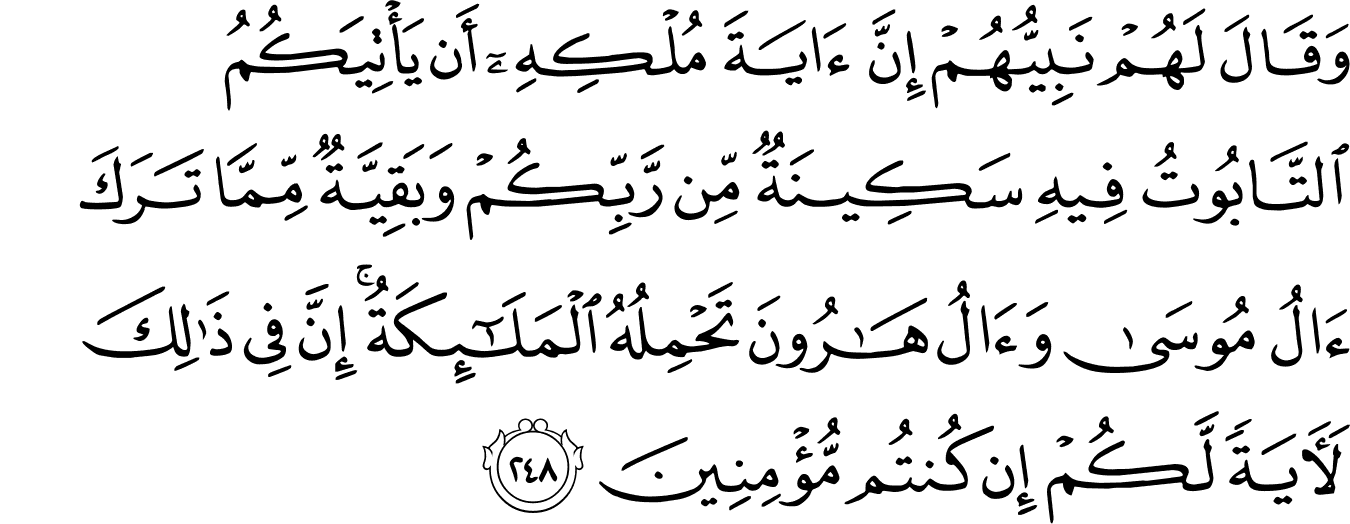 وَقَالَ لَهُمۡ نَبِيُّهُمۡ إِنَّ ءَايَةَ مُلۡكِهِۦٓ أَن يَأۡتِيَكُمُ
ٱلتَّابُوتُ فِيهِ سَكِينَةٞ مِّن رَّبِّكُمۡ وَبَقِيَّةٞ مِّمَّا تَرَكَ
ءَالُ مُوسَىٰ وَءَالُ هَٰرُونَ تَحۡمِلُهُ ٱلۡمَلَٰٓئِكَةُۚ إِنَّ فِي ذَٰلِكَ
لَأٓيَةٗ لَّكُمۡ إِن كُنتُم مُّؤۡمِنِينَ ٢٤٨